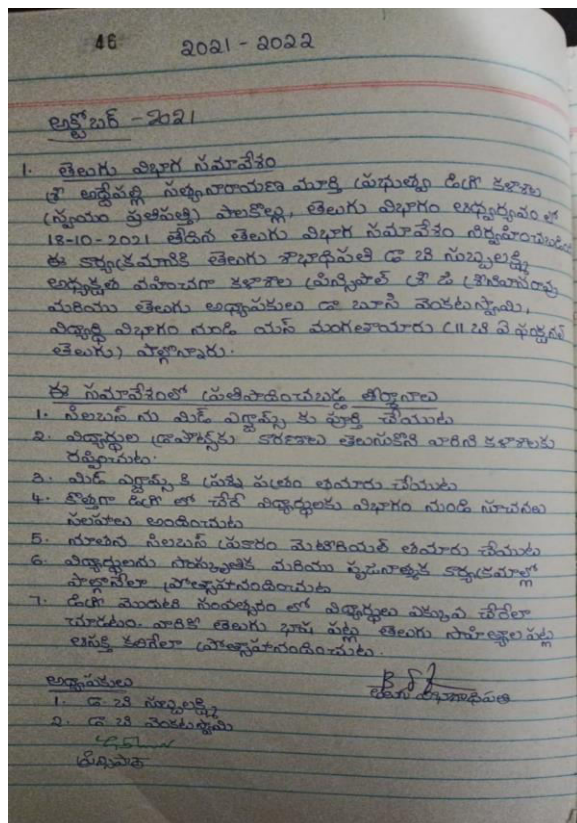 46
2021 - 2022
అక్టోబర్ - 2021
1. తెలుగు విభాగ సమావేశం
శ్రీ అద్దేపల్లి సత్యనారాయణ మూర్తి ప్రభుత్వ డిగ్రీ కళాశాల
(స్వయం ప్రతిపత్తి) పాలకొల్లు, తెలుగు విభాగం ఆధ్వర్యవం లో
18-10-2021 తేదిన తెలుగు విభాగ సమావేశం నిర్వహించబడినది
ఈ కార్యక్రమానికి తెలుగు శాఖాధిపతి డా బి సుబ్బలక్ష్మి
అధ్యక్షత వహించగా కళాశాల ప్రిన్సిపాల్ శ్రీ డి శ్రీనివాసరావు
మరియు తెలుగు అధ్యాపకులు డా బూసి వెంకటస్వామి,
విద్యార్థి విభాగం నుండి యస్ మంగతాయారు (II బి ఏ
తెలుగు) పాల్గొన్నారు.
ఈ సమావేశంలో ప్రతిపాదించబడ్డ తీర్మానాలు
1. సిలబస్ ను మిడ్ ఎగ్జామ్స్ కు పూర్తి చేయుట
2. విద్యార్థుల డ్రాపౌట్స్‌కు కారణాలు తెలుసుకొని వారిని కళాశాలకు
రప్పించుట.
3. మిడ్ ఎగ్జామ్స్ కి ప్రశ్న పత్రం తయారు చేయుట
4. కొత్తగా డిగ్రీ లో చేరే విద్యార్థులకు విభాగం నుండి సూచనలు
సలహాలు అందించుట
5. నూతన సిలబస్ ప్రకారం మెటీరియల్ తయారు చేయుట
6. విద్యార్థులను సాంస్కృతిక మరియు సృజనాత్మక కార్యక్రమాల్లో
పాల్గొనేలా ప్రోత్సాహానందించుట
7. డిగ్రీ మొదటి సంవత్సరం లో విద్యార్థులు ఎక్కువ చేరేలా
చూడటం. వారికి తెలుగు భాష పట్ల తెలుగు సాహిత్యాల పట్ల
ఆసక్తి కలిగేలా ప్రోత్సాహానందించుట.
అధ్యాపకులు
1. డా బి సుబ్బలక్ష్మి
2. డా బి వెంకటస్వామి
తెలుగు విభాగాధిపతి